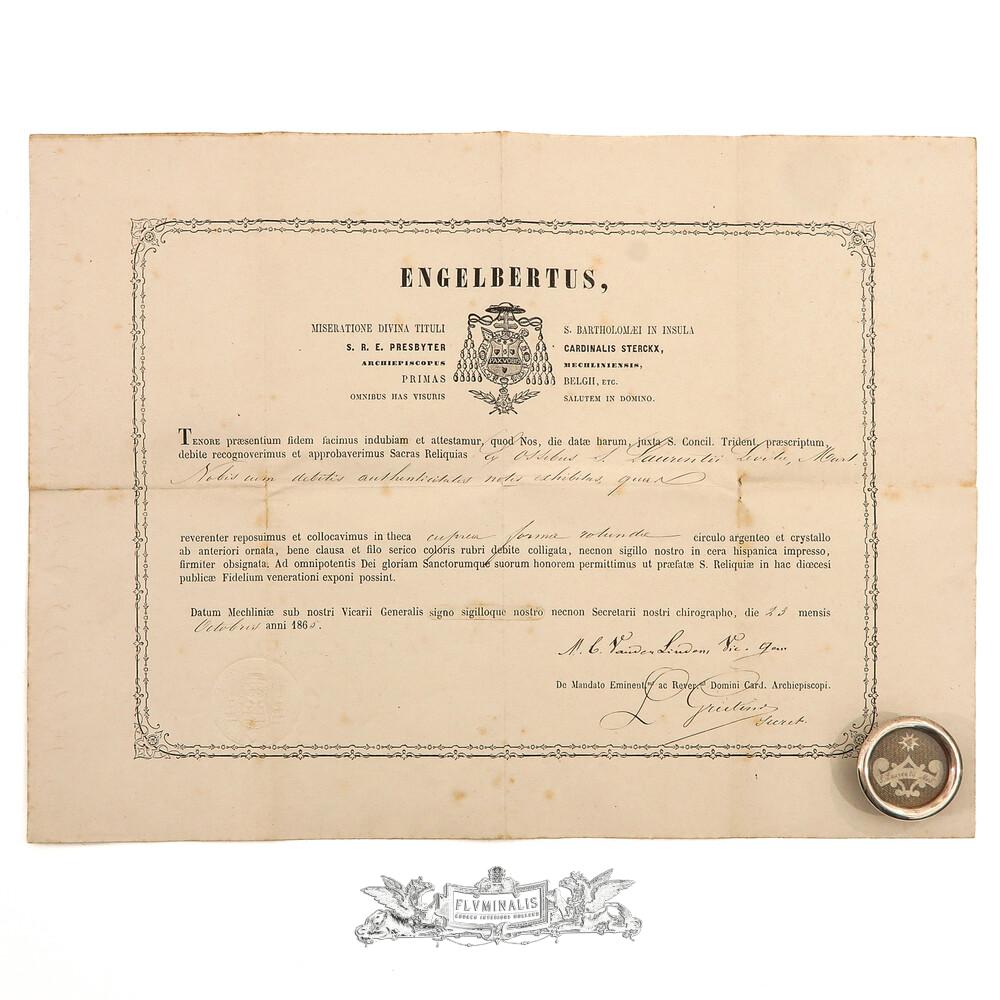 ENGELBERTUS,
MISERATIONE DIVINA TITULI S. BARTHOLOMÆI IN INSULA
S. R. E. PRESBYTER CARDINALIS STERCKX,
ARCHIEPISCOPUS MECHLINIENSIS,
PRIMAS BELGII, ETC.
OMNIBUS HAS VISURIS SALUTEM IN DOMINO.
PAX VOBIS
TENORE præsentium fidem facimus indubiam et attestamur, quod Nos, die datæ harum, juxta S. Concil. Trident. præscriptum,
debite recognoverimus et approbaverimus Sacras Reliquias Ex Ossibus S. Laurentii Levitæ, Mart
Nobis cum debitis authenticitatis notis exhibitas, quas
reverenter reposuimus et collocavimus in theca cuprea formæ rotundæ circulo argenteo et crystallo
ab anteriori ornata, bene clausa et filo serico coloris rubri debite colligata, necnon sigillo nostro in cera hispanica impresso,
firmiter obsignata. Ad omnipotentis Dei gloriam Sanctorumque suorum honorem permittimus ut præfatæ S. Reliquiæ in hac diœcesi
publicæ Fidelium venerationi exponi possint.
Datum Mechliniæ sub nostri Vicarii Generalis signo sigilloque nostro necnon Secretarii nostri chirographo, die 23 mensis
Octobris anni 1865.
M. C. Vander Linden, Vic. gen.
De Mandato Eminent. ac Rever. Domini Card. Archiepiscopi.
Secret.
S. Laurentii Mart.
FLVMINALIS
CHURCH INTERIORS HOLLAND